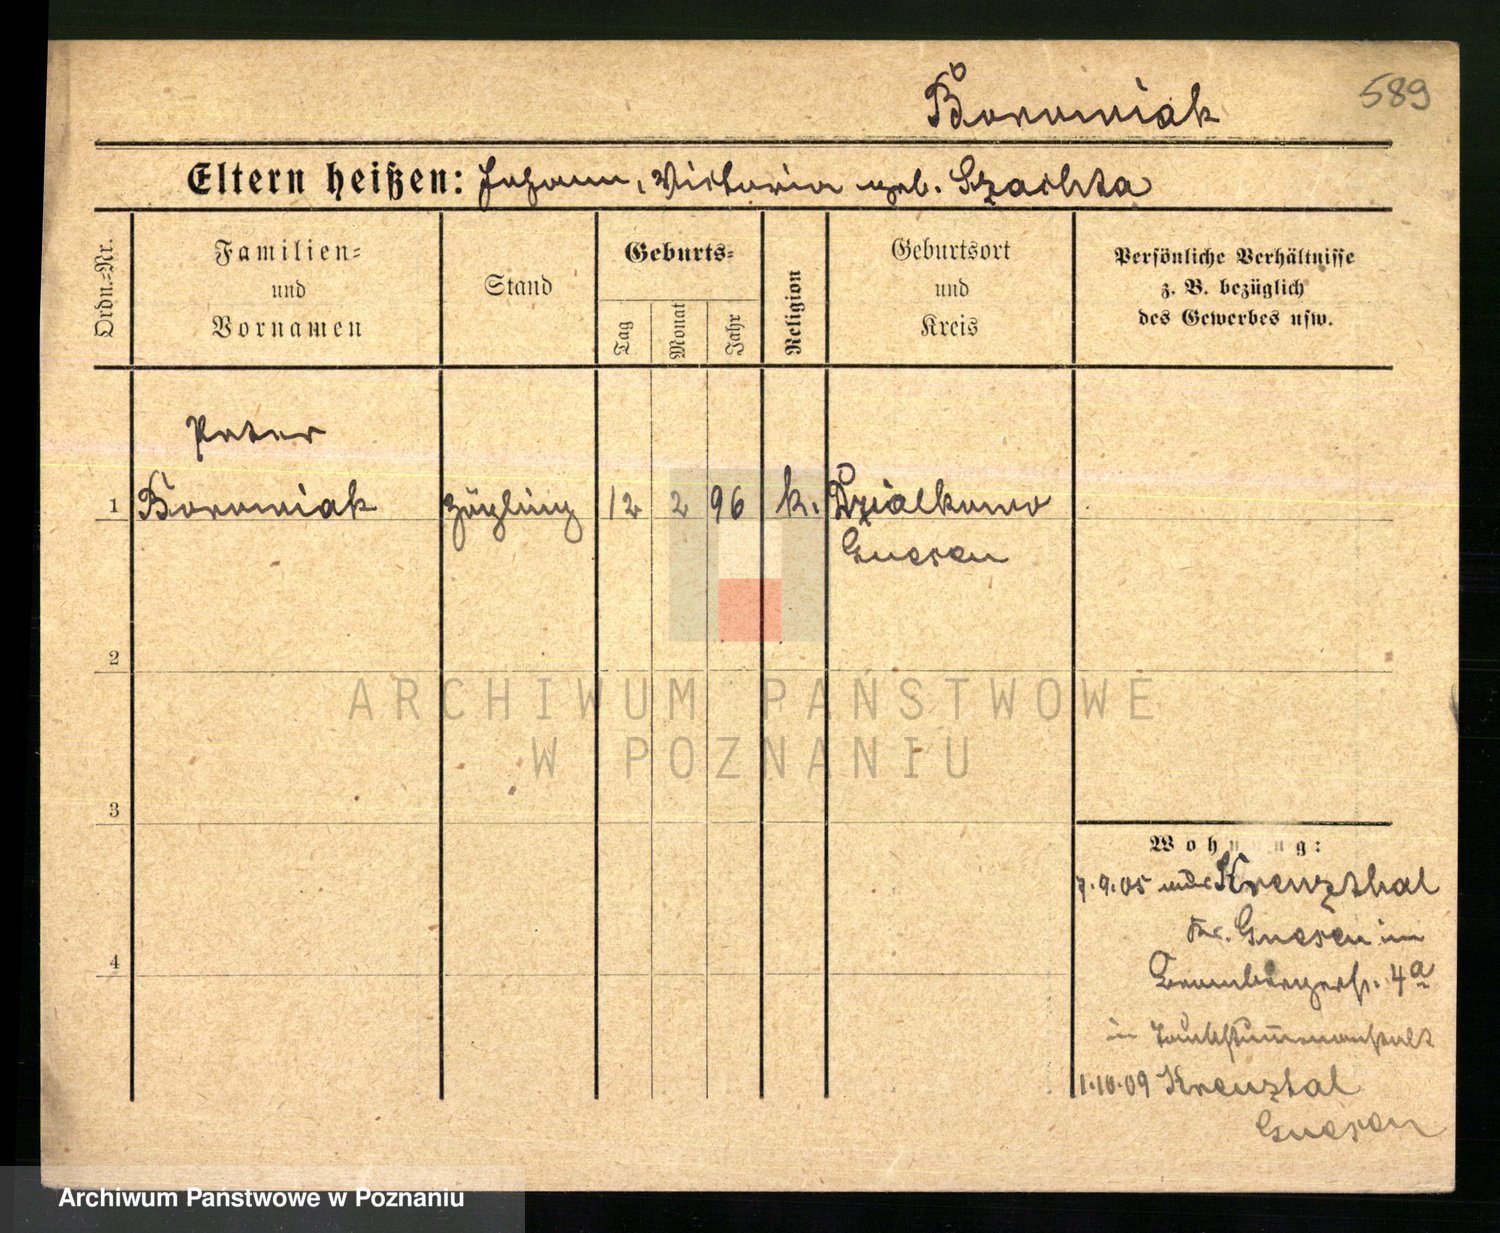 Boroniak
589
Eltern heißen: Johann, Victoria geb. Szachta
Ordn.-Nr.
Familien-
und
Vornamen
Stand
Geburts-
Tag
Monat
Jahr
Religion
Geburtsort
und
Kreis
Persönliche Verhältnisse
z. B. bezüglich
des Gewerbes usw.
Peter
1 Boroniak Zögling 12 2 96 k. Dzialkowo
Gnesen
2
ARCHIWUM PAŃSTWOWE
W POZNANIU
3
Wohnung:
7.9.05 Kreuzthal
Kr. Gnesen in
Brombergerstr. 4a
in Taubstummenanstalt
4
1.10.09 Kreuztal
Gnesen
Archiwum Państwowe w Poznaniu